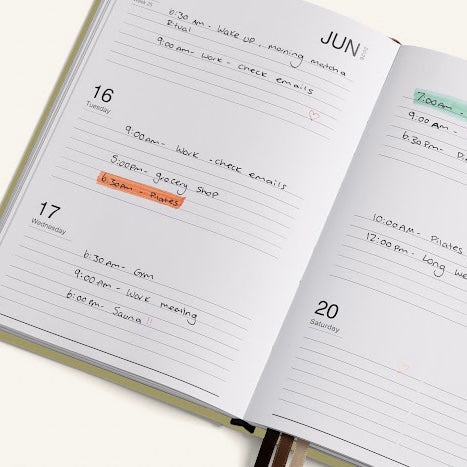 Week 25
JUN
6:30 am - Wake up, morning matcha
Ritual
9:00am - Work - check emails
16
Tuesday
9:00am - Work - check emails
5:00pm - grocery shop
6:30pm - Pilates
17
Wednesday
6:30am - Gym
9:00am - Work meeting
6:00pm - Sauna !!
7:00am -
9:00 am -
6:30pm -
10:00am - Pilates
12:00pm - Long
20
Saturday